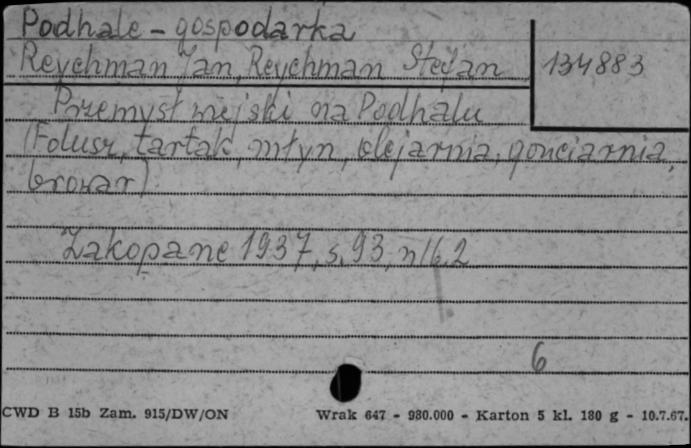 Podhale - gospodarka
Reychman Jan, Reychman Stefan
134883
Przemysł wiejski na Podhalu
(Folusz, tartak, młyn, olejarnia, gonciarnia,
browar)
Zakopane 1937, s. 93, nlb. 2
6
CWD B 15b Zam. 915/DW/ON
Wrak 647 - 980.000 - Karton 5 kl. 180 g - 10.7.67.